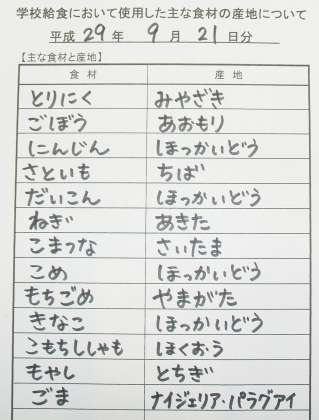 学校給食において使用した主な食材の産地について
平成 29 年 9 月 21 日分
【主な食材と産地】
食材 産地
とりにく みやざき
ごぼう あおもり
にんじん ほっかいどう
さといも ちば
だいこん ほっかいどう
ねぎ あきた
こまつな さいたま
こめ ほっかいどう
もちごめ やまがた
きなこ ほっかいどう
こもちししゃも ほくおう
もやし とちぎ
ごま ナイジェリア・パラグアイ